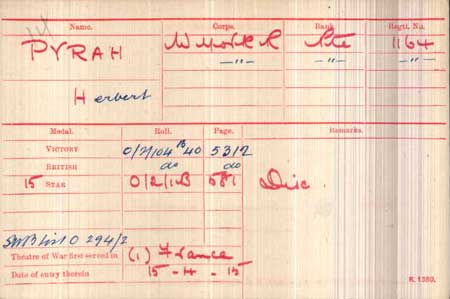 Name. Corps. Rank Regtl. No.
14
PYRAH W York R Pte 1164
—"— —"— —"—
Herbert
Medal. Roll. Page. Remarks.
VICTORY O/1/104 B 40 5312
BRITISH do do
15 STAR O/2/1B 581 Disc.
SWB List O 294/2
Theatre of War first served in (1) France
Date of entry therein 15-4-15
K. 1380.